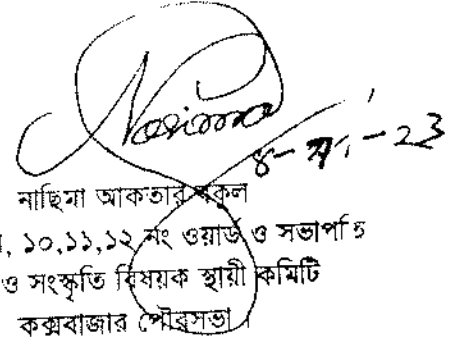 Nasima
নাছিমা আকতার বকুল
, ১০,১১,১২ নং ওয়ার্ড ও সভাপতি
ও সংস্কৃতি বিষয়ক স্থায়ী কমিটি
কক্সবাজার পৌরসভা।